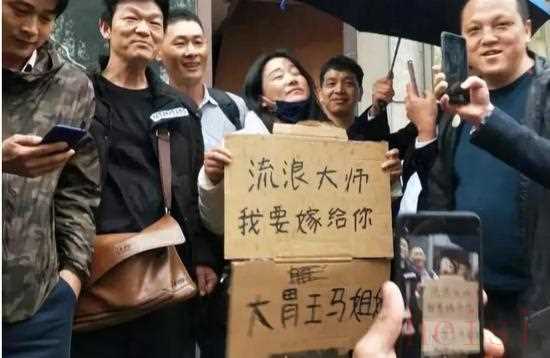 流浪大师
我要嫁给你
大胃王马姐